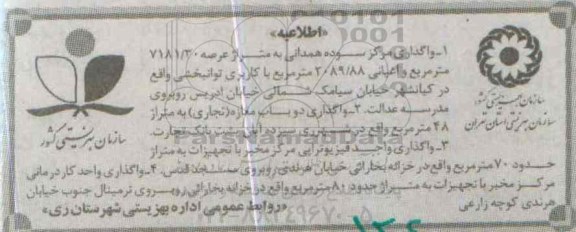 «اطلاعیه»
۱-واگذاری مرکز ستوده همدانی به متراژ عرصه ۷۱۸۱/۳۰
مترمربع و اعیانی ۲۰۸۹/۸۸ مترمربع با کاربری توانبخشی واقع
در کیانشهر خیابان سیامک شمالی خیابان ادریس روبروی
مدرسه عدالت. ۲-واگذاری دو باب مغازه (تجاری) به متراژ
۴۸ مترمربع واقع در پشت بانک تجارت.
۳-واگذاری واحد فیزیوتراپی مرکز مخبر با تجهیزات به متراژ
حدود ۷۰ مترمربع واقع در خزانه بخارائی خیابان هرندی روبروی مسجد قدس. ۴-واگذاری واحد کاردرمانی
مرکز مخبر با تجهیزات به متراژ حدود ۸۰ مترمربع واقع در خزانه بخارائی روبروی ترمینال جنوب خیابان
هرندی کوچه زارعی
«روابط عمومی اداره بهزیستی شهرستان ری»
سازمان بهزیستی کشور
سازمان بهزیستی استان تهران
سازمان بهزیستی کشور